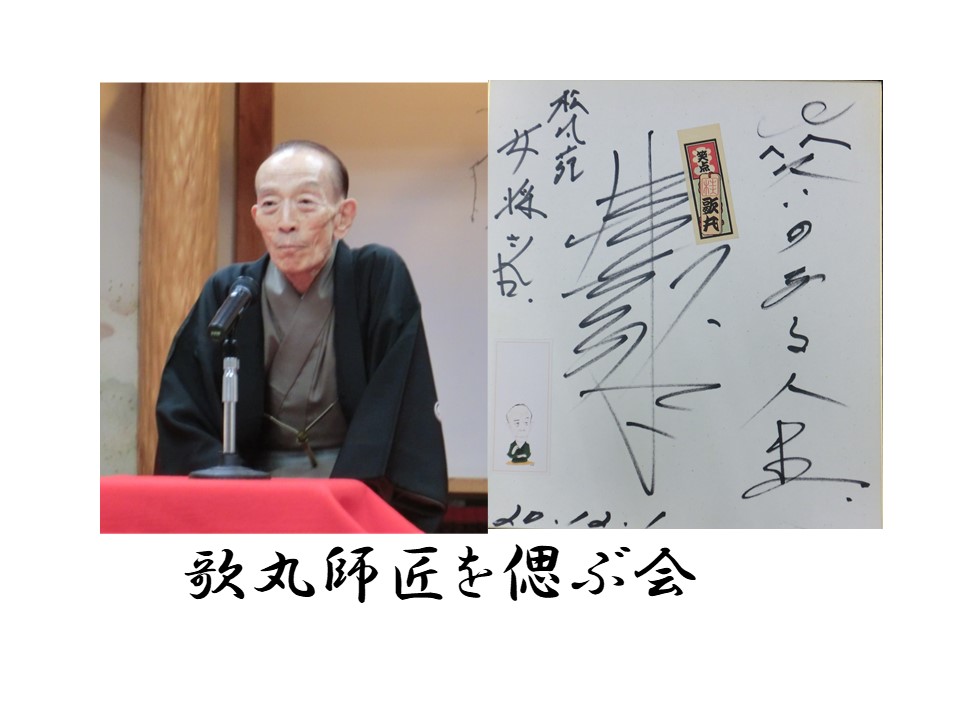 笑いのある人生.
笑点
歌丸
松風苑
女将さん江.
20.12.1
歌丸師匠を偲ぶ会